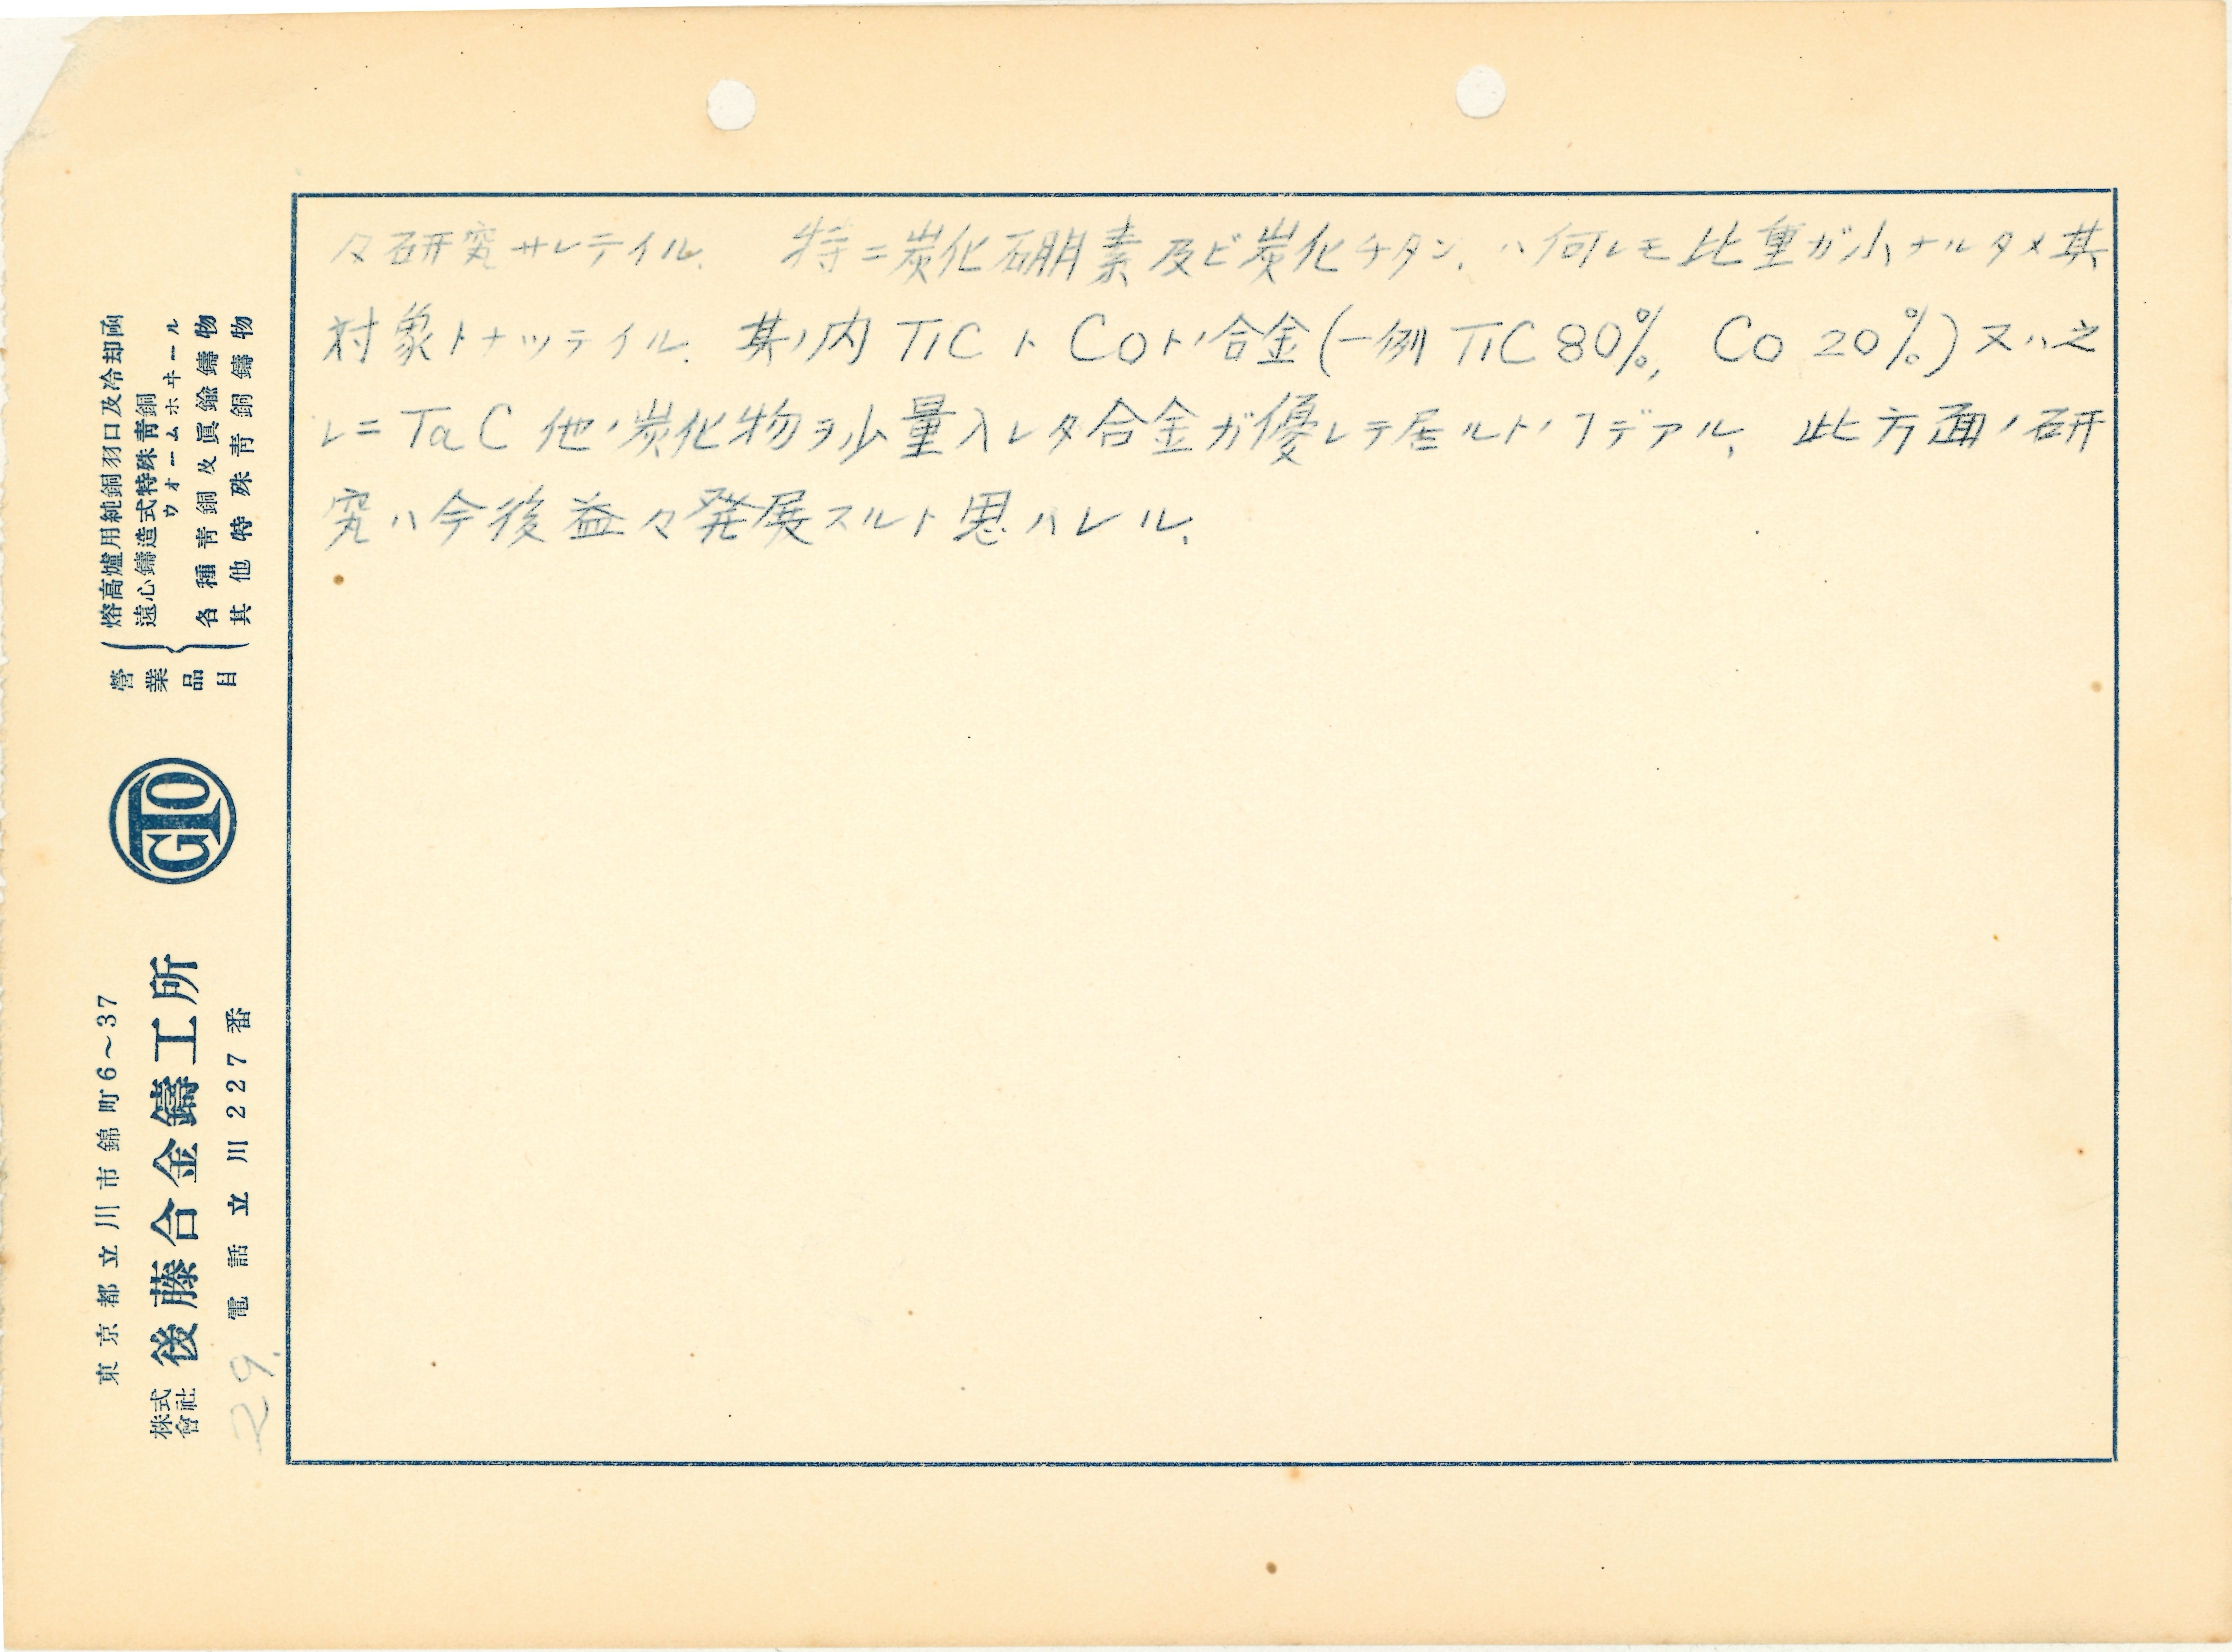 々研究サレテイル、 特ニ炭化硼素及ビ炭化チタン、ハ何レモ比重ガ小ナルタメ其
対象トナッテイル、其ノ内 TiC ト Coトノ合金(一例 TiC 80%, Co 20%)又ハ之
レニ TaC 他ノ炭化物ヲ少量入レタ合金ガ優レテ居ルトノヿデアル、 此方面ノ研
究ハ今後益々発展スルト思ハレル、
營業品目
熔高爐用純銅羽口及冷却函
遠心鑄造式特殊靑銅
ウオームホヰール
各種靑銅及眞鍮鑄物
其他特殊靑銅鑄物
GTO
東京都立川市錦町6～37
株式會社 後藤合金鑄工所
電話 立川 227番
29.